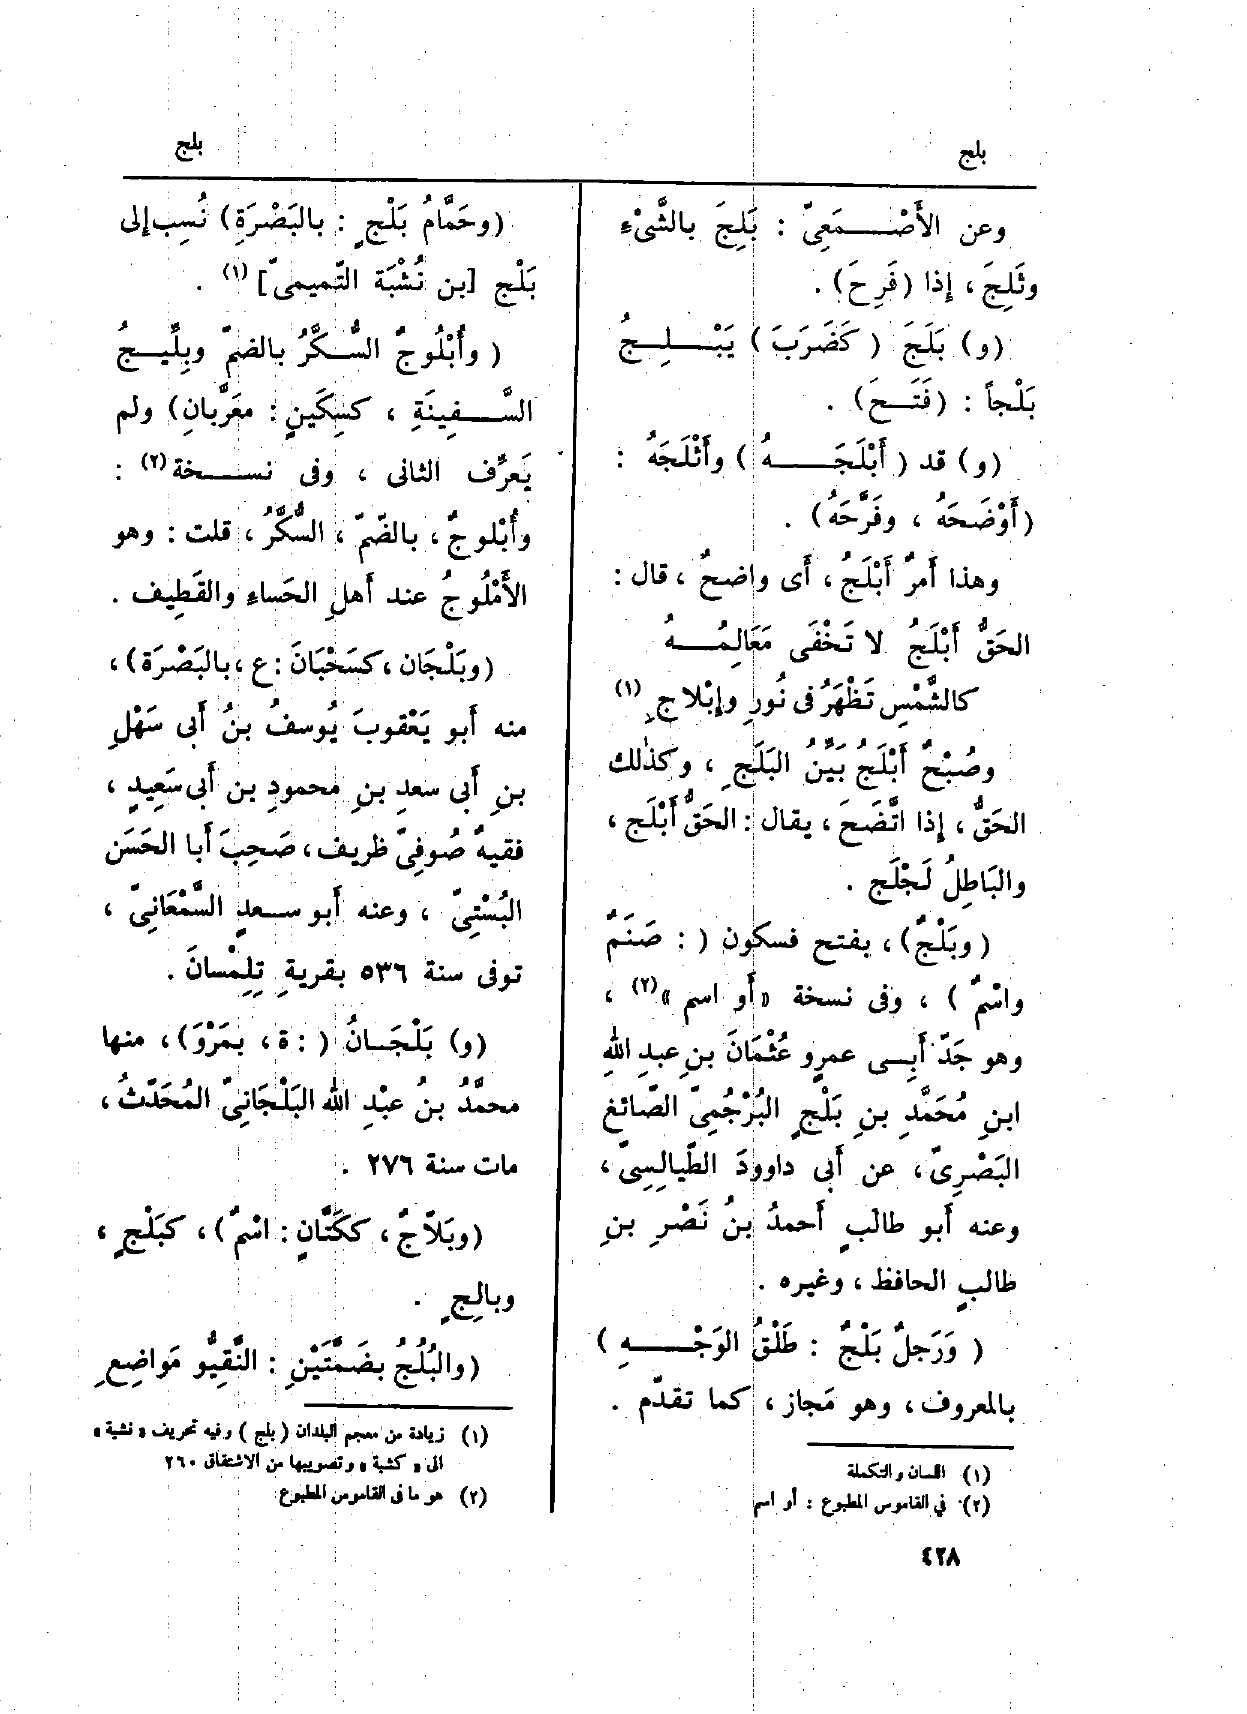 بلج
بلج
وعن الأَصْـمَعِىّ : بَلِجَ بالشَّىْءِ
وثَلِجَ ، إِذا (فَرِحَ) .
(و) بَلَجَ ( كَضَرَبَ ) يَبْـلِـجُ
بَلْجاً : (فَتَـحَ) .
(و) قد ( أَبْلَجَـهُ ) وأَثْلَجَهُ :
(أَوْضَحَهُ ، وفَرَّحَهُ) .
وهذا أَمرٌ أَبْلَجُ ، أَى واضحٌ ، قال :
الحَقُّ أَبْلَجُ لا تَخْفَى مَعَالِمُـهُ
كالشَّمْسِ تَظْهَرُ فى نُورٍ وإِبْلاجِ (١)
وصُبْحٌ أَبْلَجُ بَيِّنُ البَلَجِ ، وكذٰلك
الحَقُّ ، إِذا اتَّضَحَ ، يقال : الحَقُّ أَبْلَج ،
والبَاطِلُ لَجْلَج .
(وبَلْجٌ) ، بفتح فسكون ( : صَنَمٌ
واسْمٌ ) ، وفى نسخة «أَو اسم» (٢) ،
وهو جَدّ أَبِـى عمرٍو عُثْمَانَ بنِ عبدِ اللهِ
ابنِ مُحَمَّدِ بنِ بَلْجٍ البُرْجُمِىّ الصّائغ
البَصْرِىّ ، عن أَبى داوودَ الطَّيالِسِىّ ،
وعنه أَبو طالبٍ أَحمدُ بنُ نَصْرِ بنِ
طالبٍ الحافظ ، وغيره .
( وَرَجلٌ بَلْجٌ : طَلْقُ الوَجْـهِ )
بالمعروف ، وهو مَجاز ، كما تقدّم .
(١) اللسان والتكملة
(٢) فى القاموس المطبوع : أو اسم
(وحَمَّامُ بَلْجٍ : بالبَصْرَةِ) نُسِب إِلى
بَلْج [بن نُشْبَة التَّميمىّ] (١) .
( وأُبْلُوجٌ السُّكَّرُ بالضمّ وبِلِّيـجُ
السَّـفِينَةِ ، كسِكِّينٍ : مُعَرَّبانِ) ولم
يَعرِّف الثانى ، وفى نسـخة (٢) :
وأُبْلوجٌ ، بالضّمّ ، السُّكَّرُ ، قلت : وهو
الأُمْلُوجُ عند أَهلِ الحَساءِ والقَطِيف .
(وبَلْجَان ، كسَحْبَانَ : ع ، بالبَصْرَة) ،
منه أَبو يَعْقوبَ يُوسفُ بنُ أَبى سَهْلِ
بنِ أَبى سعدِ بنِ محمودِ بن أَبى سَعِيدٍ ،
فقيهٌ صُوفىّ ظريف ، صَحِبَ أَبا الحَسَن
البُسْتِىّ ، وعنه أَبو سـعدٍ السَّمْعَانىّ ،
توفى سنة ٥٣٦ بقرية تِلِمْسانَ .
(و) بَلْجَـانُ ( : ة ، بمَرْوَ) ، منها
محمَّدُ بنُ عبْدِ الله البَلْجَانىّ المُحَدّثُ ،
مات سنة ٢٧٦ .
(وبَلاّجٌ ، ككَتَّانٍ : اسْمٌ) ، كبَلْجٍ ،
وبالِجٍ .
(والبُلُجُ بضَمَّتَيْنِ : النَّقِيُّو مَواضِعِ
(١) زيادة من معجم البلدان ( بلج ) وفيه تحريف « نشبة »
الى « كشبة » وتصويبها من الاشتقاق ٢٦٠
(٢) هو ما فى القاموس المطبوع
٤٢٨